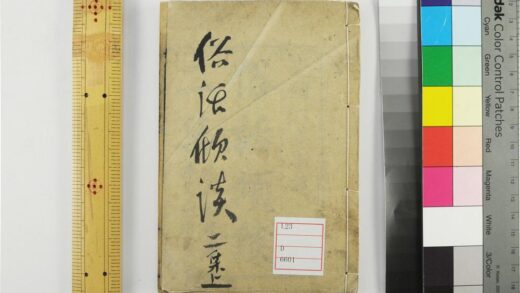 俗话倾谈
二集上
123
D
6601
Kodak Color Control Patches
Cyan
Green
Yellow
Red
Magenta
White
3/Color